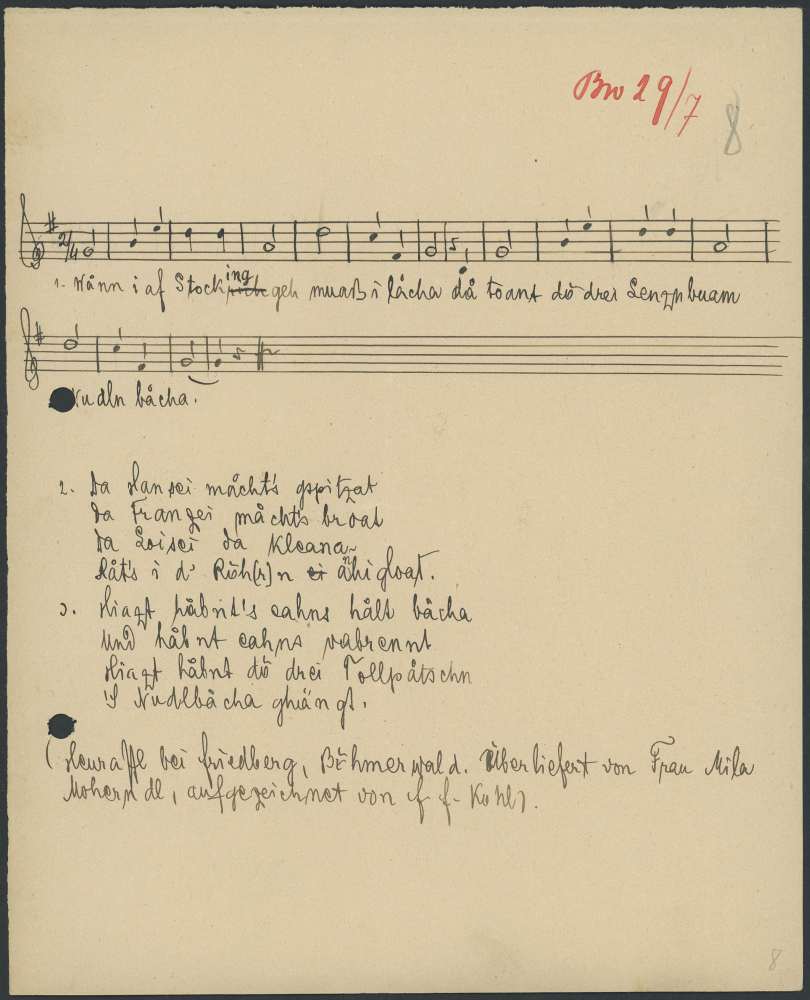 Bw 29/7
8
2/4
1. Wånn i af Stocking geh muaß i låcha då toant dö drei Lenznbuam
Nudln båcha.
2. Da Hansei måcht's gspitzat
Da Franzei måcht's broat
Da Loisei da Kleana
Råt's i d' Röh(r)n åhigloat.
3. Hiazt håbnt's eahns hålt båcha
Und håbnt eahns vabrennt
Hiazt håbnt dö drei Tollpåtschn
'S Nudlbåcha ghängt.
(Heuraffl bei Friedberg, Böhmerwald. Überliefert von Frau Mila
Moherndl, aufgezeichnet von F. F. Kohl).
8